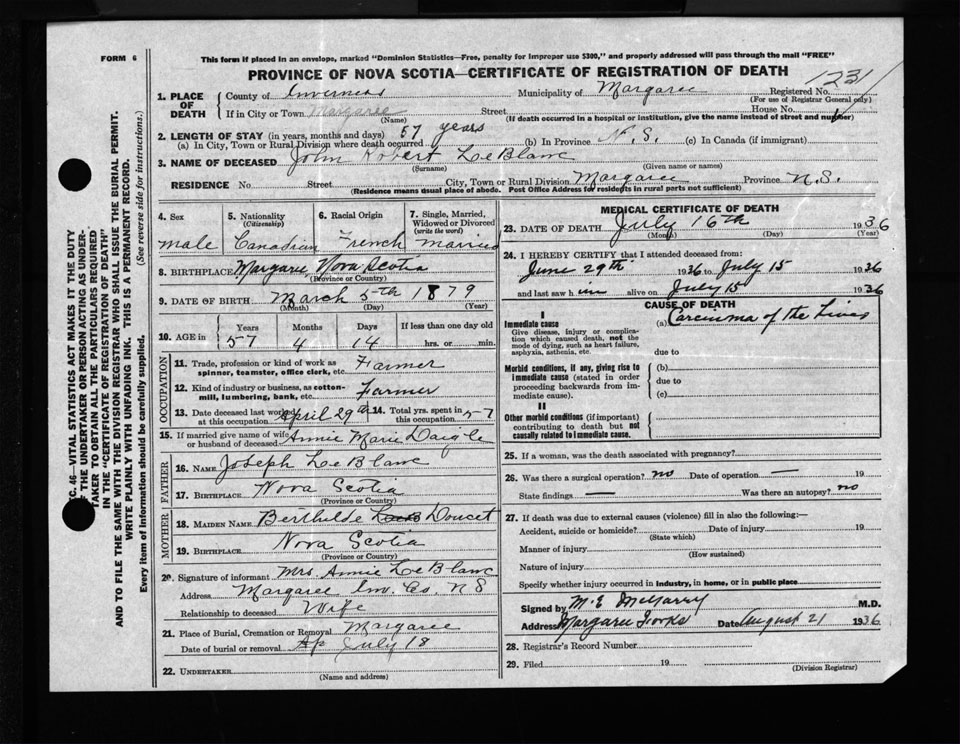 FORM 6
This form if placed in an envelope, marked "Dominion Statistics—Free, penalty for improper use $300," and properly addressed will pass through the mail "FREE"
PROVINCE OF NOVA SCOTIA—CERTIFICATE OF REGISTRATION OF DEATH
1. PLACE OF DEATH
County of Inverness Municipality of Margaree Registered No. 1231
(For use of Registrar General only)
If in City or Town Margaree Street House No.
(Name) (If death occurred in a hospital or institution, give the name instead of street and number)
2. LENGTH OF STAY (in years, months and days) 57 years
(a) In City, Town or Rural Division where death occurred (b) In Province N.S. (c) In Canada (if immigrant)
3. NAME OF DECEASED John Robert LeBlanc
(Surname) (Given name or names)
RESIDENCE No. Street City, Town or Rural Division Margaree Province N.S.
(Residence means usual place of abode. Post Office Address for residents in rural parts not sufficient)
4. Sex 5. Nationality (Citizenship) 6. Racial Origin 7. Single, Married, Widowed or Divorced (write the word)
male Canadian French married
8. BIRTHPLACE Margaree Nova Scotia
(Province or Country)
9. DATE OF BIRTH March 5th 1879
(Month) (Day) (Year)
10. AGE in Years Months Days If less than one day old
57 4 14 hrs. or min.
OCCUPATION
11. Trade, profession or kind of work as spinner, teamster, office clerk, etc. Farmer
12. Kind of industry or business, as cotton-mill, lumbering, bank, etc. Farmer
13. Date deceased last worked at this occupation April 29th 14. Total yrs. spent in this occupation 57
15. If married give name of wife or husband of deceased Annie Marie Daigle
FATHER
16. NAME Joseph LeBlanc
17. BIRTHPLACE Nova Scotia
(Province or Country)
MOTHER
18. MAIDEN NAME Berthilde Doucet
19. BIRTHPLACE Nova Scotia
(Province or Country)
20. Signature of informant Mrs. Annie LeBlanc
Address Margaree Inv. Co. N S
Relationship to deceased Wife
21. Place of Burial, Cremation or Removal Margaree
Date of burial or removal Ap July 18
22. UNDERTAKER
(Name and address)
MEDICAL CERTIFICATE OF DEATH
23. DATE OF DEATH July 16th 1936
(Month) (Day) (Year)
24. I HEREBY CERTIFY that I attended deceased from:
June 29th 1936 to July 15 1936
and last saw h im alive on July 15 1936
CAUSE OF DEATH
I
Immediate cause (a) Carcinma of the Liver
Give disease, injury or complication which caused death, not the mode of dying, such as heart failure, asphyxia, asthenia, etc.
due to
Morbid conditions, if any, giving rise to immediate cause (stated in order proceeding backwards from immediate cause).
(b)
due to
(c)
II
Other morbid conditions (if important) contributing to death but not causally related to immediate cause.
25. If a woman, was the death associated with pregnancy?
26. Was there a surgical operation? no Date of operation — 19
State findings — Was there an autopsy? no
27. If death was due to external causes (violence) fill in also the following:—
Accident, suicide or homicide? Date of injury 19
(State which)
Manner of injury
(How sustained)
Nature of injury
Specify whether injury occurred in industry, in home, or in public place
Signed by M.E. McGarry M.D.
Address Margaree Forks Date August 21 1936
28. Registrar's Record Number
29. Filed 19
(Division Registrar)
SEC. 46—VITAL STATISTICS ACT MAKES IT THE DUTY
OF THE UNDERTAKER OR PERSON ACTING AS UNDER-
TAKER TO OBTAIN ALL THE PARTICULARS REQUIRED
IN THE "CERTIFICATE OF REGISTRATION OF DEATH"
AND TO FILE THE SAME WITH THE DIVISION REGISTRAR WHO SHALL ISSUE THE BURIAL PERMIT.
WRITE PLAINLY WITH UNFADING INK. THIS IS A PERMANENT RECORD.
Every item of information should be carefully supplied. (See reverse side for instructions.)